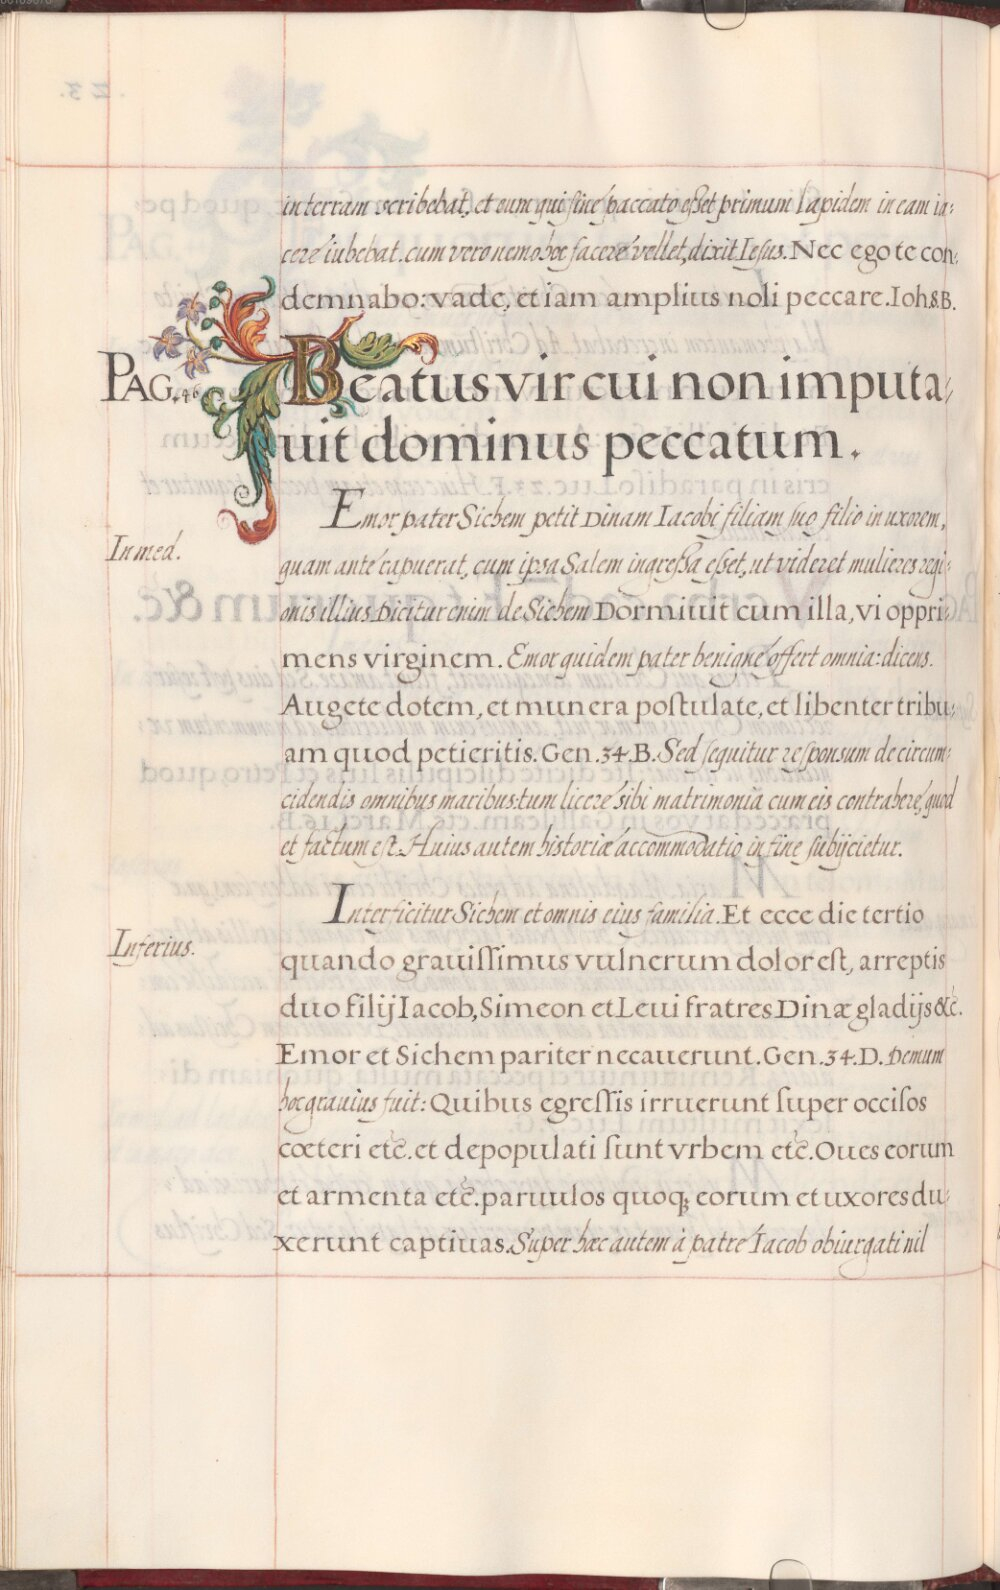 in terram scribebat, et eum qui sine paccato esset primum lapidem in eam ia-
cere iubebat. cum vero nemo hoc facere vellet, dixit Iesus. Nec ego te con-
demnabo: vade, et iam amplius noli peccare. Ioh. 8. B.
PAG. 46
Beatus vir cui non imputa-
uit dominus peccatum.
Emor pater Sichem petit Dinam Iacobi filiam suo filio in uxorem,
In med.
quam ante capuerat, cum ipsa Salem ingressa esset, ut videret mulieres regi-
onis illius Dicitur enim de Sichem Dormiuit cum illa, vi oppri-
mens virginem. Emor quidem pater benigne offert omnia: dicens.
Augete dotem, et munera postulate, et libenter tribu-
am quod petieritis. Gen. 34. B. Sed sequitur responsum de circum-
cidendis omnibus maribus: tum licere sibi matrimonia cum eis contrahere, quod
et factum est. Huius autem historiæ accommodatio in fine subijcietur.
Interficitur Sichem et omnis eius familia. Et ecce die tertio
Inferius.
quando grauissimus vulnerum dolor est, arreptis
duo filij Iacob, Simeon et Leui fratres Dinæ gladijs &c.
Emor et Sichem pariter necauerunt. Gen. 34. D. Demum
hoc grauius fuit: Quibus egressis irruerunt super occisos
cœteri etc. et depopulati sunt vrbem etc. Oues eorum
et armenta etc. paruulos quoq; eorum et uxores du-
xerunt captiuas. Super hæc autem à patre Iacob obiurgati nil